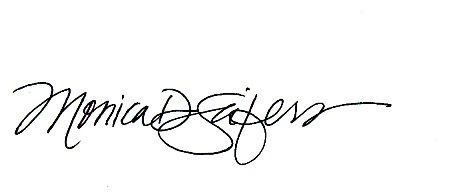 Monica D Seifers